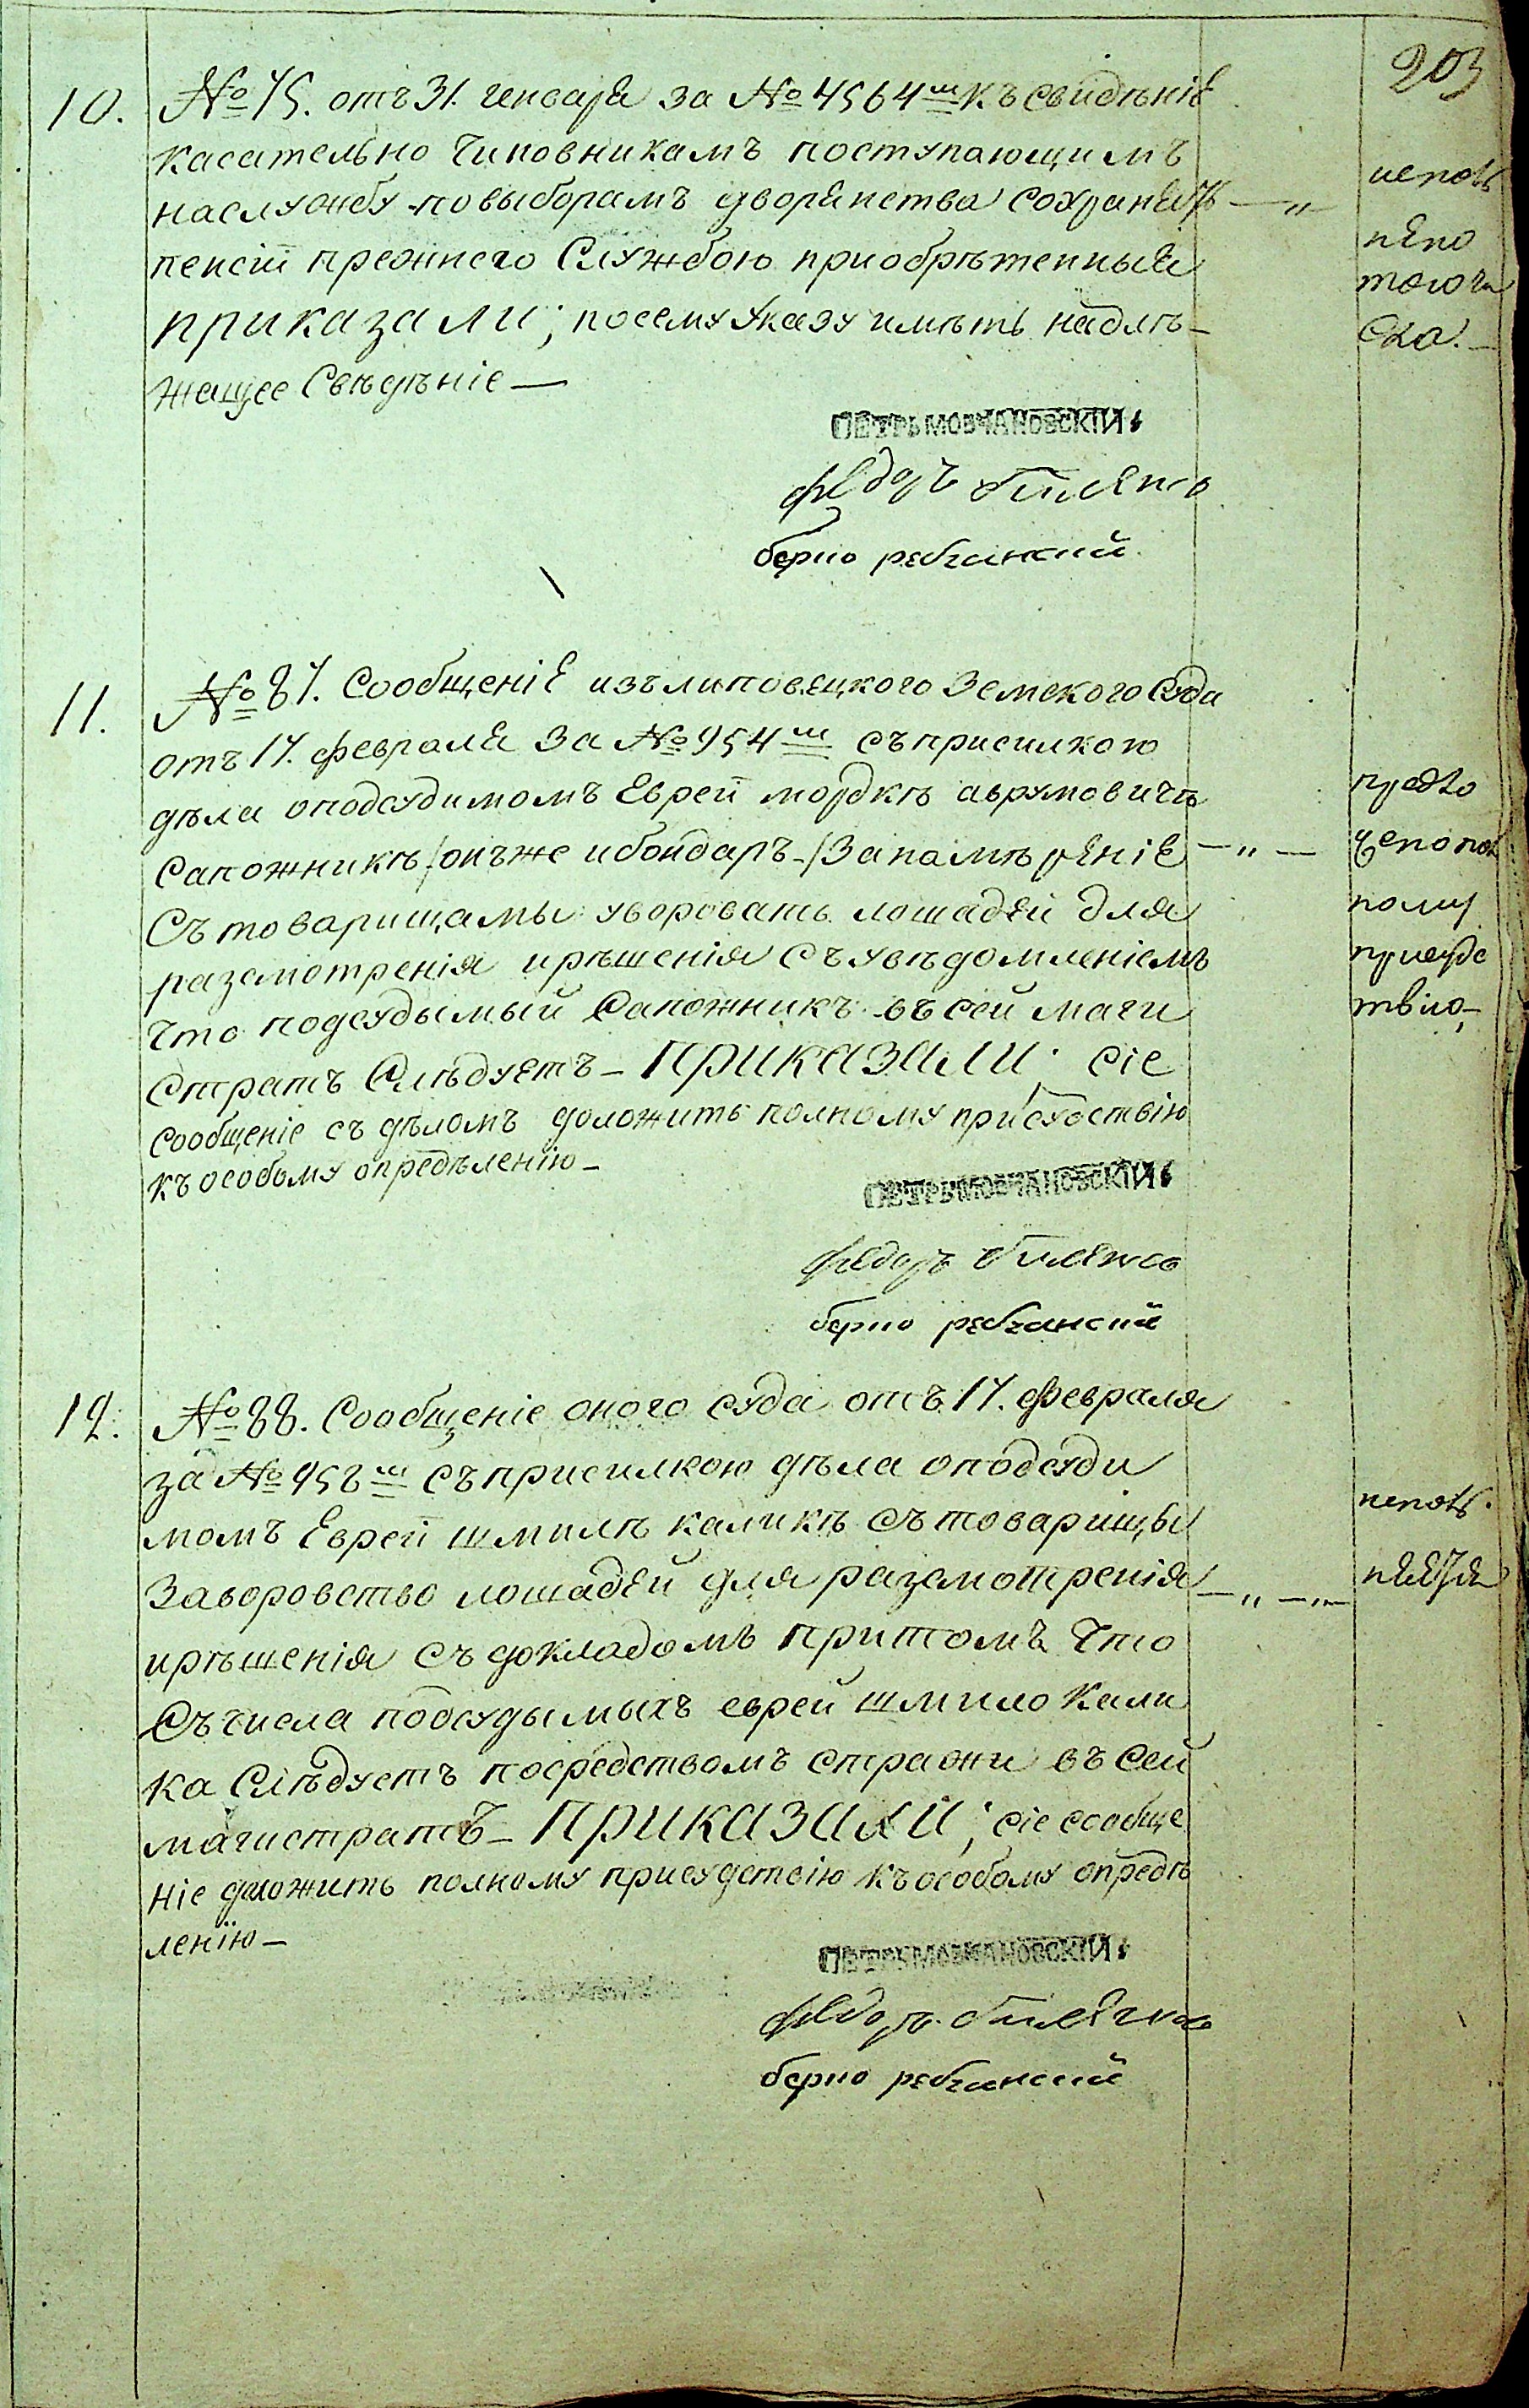 203
10. № 75. отъ 31. генваря за № 4564ᵐ къ свидѣніе
касательно чиновникамъ поступающимъ
наслужбу повыборамъ дворянства сохранять
пенсіи прежнего Службою приобрѣтенныя
приказали; посему Указу имѣть надлѣ-
жащее Свѣдѣніе —
ПЕТРЪ МОВЧАНОВСКІЙ
федоръ
берко
11. № 87. Сообщеніе изълиповецкого Земского Суда
отъ 17. февраля за № 954ᵐ съприсилкою
дѣла оподсудимомъ Еврей мордкѣ аврумовичѣ
Сапожникѣ /онъже ибондаръ-/ Занамѣреніе — „ —
Съ товарищамы уворовать лошадей для
разсмотренія ирѣшенія съувѣдомленіемъ
что подсудымый Сапожникъ въ сей маги
стратъ Слѣдуетъ – приказали; сіе
сообщеніе съ дѣломъ доложить полному присудствію
къ особому опредѣленію –
предло
полну
присудс
твію
ПЕТРЪ МОВЧАНОВСКІЙ
федоръ
берко
12. № 88. Сообщеніе оного суда отъ 17. февраля
за № 958ᵐ съприсилкою дѣла оподсуди
момъ Еврей шмилѣ каликѣ съ товарищы
Заворовство лошадей для разсмотренія — „ —
ирѣшенія съ докладомъ притомъ что
Съ числа подсудымыхъ еврей шмило Кали
ка Слѣдуетъ посредствомъ стражи въ Сей
магистратъ – приказали; сіе сообще
ніе доложить полному присудствію къ особому опредѣ
ленію –
ПЕТРЪ МОВЧАНОВСКІЙ
федоръ
берко